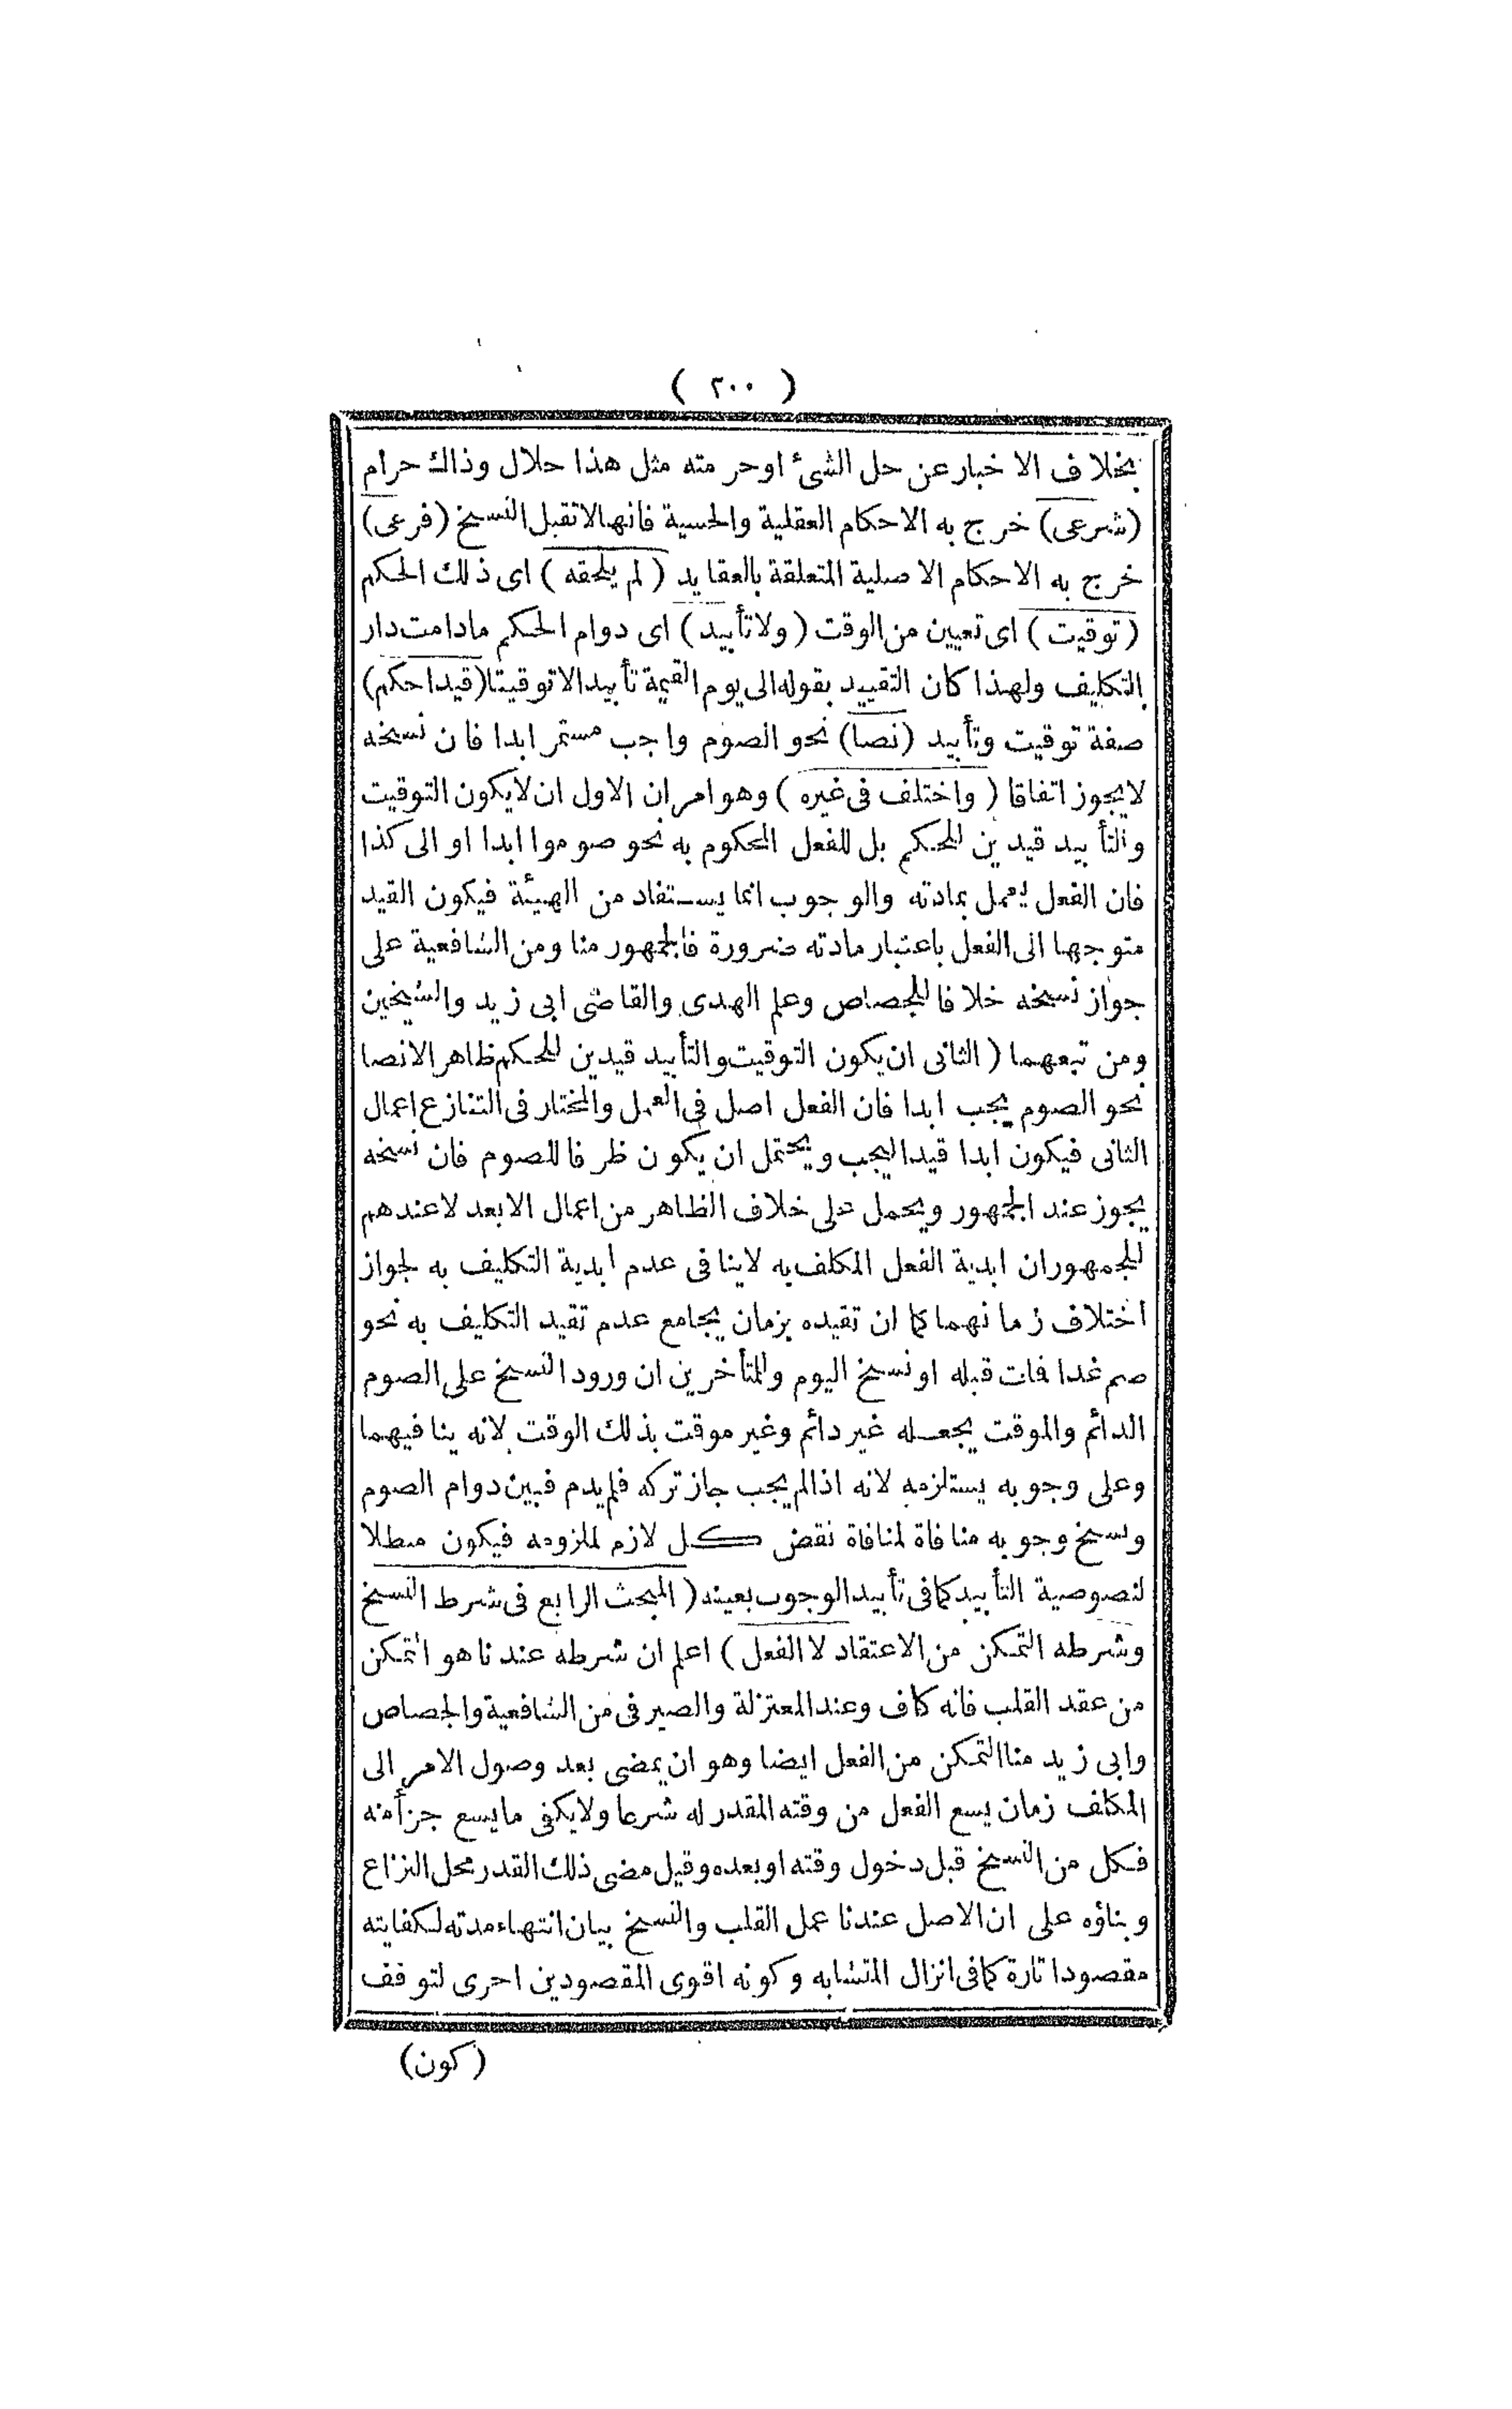 ( ٢٠٠ )
بخلاف الاخبار عن حل الشئ اوحرمته مثل هذا حلال وذاك حرام
(شرعى) خرج به الاحكام العقلية والحسية فانها لاتقبل النسخ (فرعى)
خرج به الاحكام الاصلية المتعلقة بالعقايد (لم يلحقه) اى ذلك الحكم
(توقيت) اى تعيين من الوقت (ولا تأبيد) اى دوام الحكم مادامت دار
التكليف ولهذا كان التقييد بقوله الى يوم القيمة تأبيدا لاتوقيتا (قيدا حكم)
صفة توقيت وتأبيد (نصا) نحو الصوم واجب مستمر ابدا فان نسخه
لايجوز اتفاقا (واختلف فى غيره) وهو امران الاول ان لايكون التوقيت
والتأبيد قيدين للحكم بل للفعل المحكوم به نحو صوموا ابدا او الى كذا
فان الفعل يعمل بمادته والوجوب انما يستفاد من الهيئة فيكون القيد
متوجها الى الفعل باعتبار مادته ضرورة فالجمهور منا ومن الشافعية على
جواز نسخه خلافا للجصاص وعلم الهدى والقاضى ابى زيد والشيخين
ومن تبعهما ( الثانى ان يكون التوقيت والتأبيد قيدين للحكم ظاهرا لانصا
نحو الصوم يجب ابدا فان الفعل اصل فى العمل والمختار فى التنازع اعمال
الثانى فيكون ابدا قيدا ليجب ويحتمل ان يكون ظرفا للصوم فان نسخه
يجوز عند الجمهور ويحمل على خلاف الظاهر من اعمال الابعد لاعندهم
للجمهور ان ابدية الفعل المكلف به لاينافى عدم ابدية التكليف به لجواز
اختلاف زمانهما كما ان تقيده بزمان يجامع عدم تقيد التكليف به نحو
صم غدا فات قبله او نسخ اليوم وللمتأخرين ان ورود النسخ على الصوم
الدائم والموقت يجعله غير دائم وغير موقت بذلك الوقت لانه ينافيهما
وعلى وجوبه يستلزمه لانه اذا لم يجب جاز تركه فلم يدم فبين دوام الصوم
ونسخ وجوبه منافاة لمنافاة نقض كل لازم لملزومه فيكون مبطلا
لنصوصية التأبيد كما فى تأبيد الوجوب بعينه (المبحث الرابع فى شرط النسخ
وشرطه التمكن من الاعتقاد لا الفعل ) اعلم ان شرطه عندنا هو التمكن
من عقد القلب فانه كاف وعند المعتزلة والصيرفى من الشافعية والجصاص
وابى زيد منا التمكن من الفعل ايضا وهو ان يمضى بعد وصول الامر الى
المكلف زمان يسع الفعل من وقته المقدر له شرعا ولايكفى مايسع جزأ منه
فكل من النسخ قبل دخول وقته او بعده وقبل مضى ذلك القدر محل النزاع
وبناؤه على ان الاصل عندنا عمل القلب والنسخ بيان انتهاء مدته لكفايته
مقصودا تارة كما فى انزال المتشابه وكونه اقوى المقصودين احرى لتوقف
(كون)